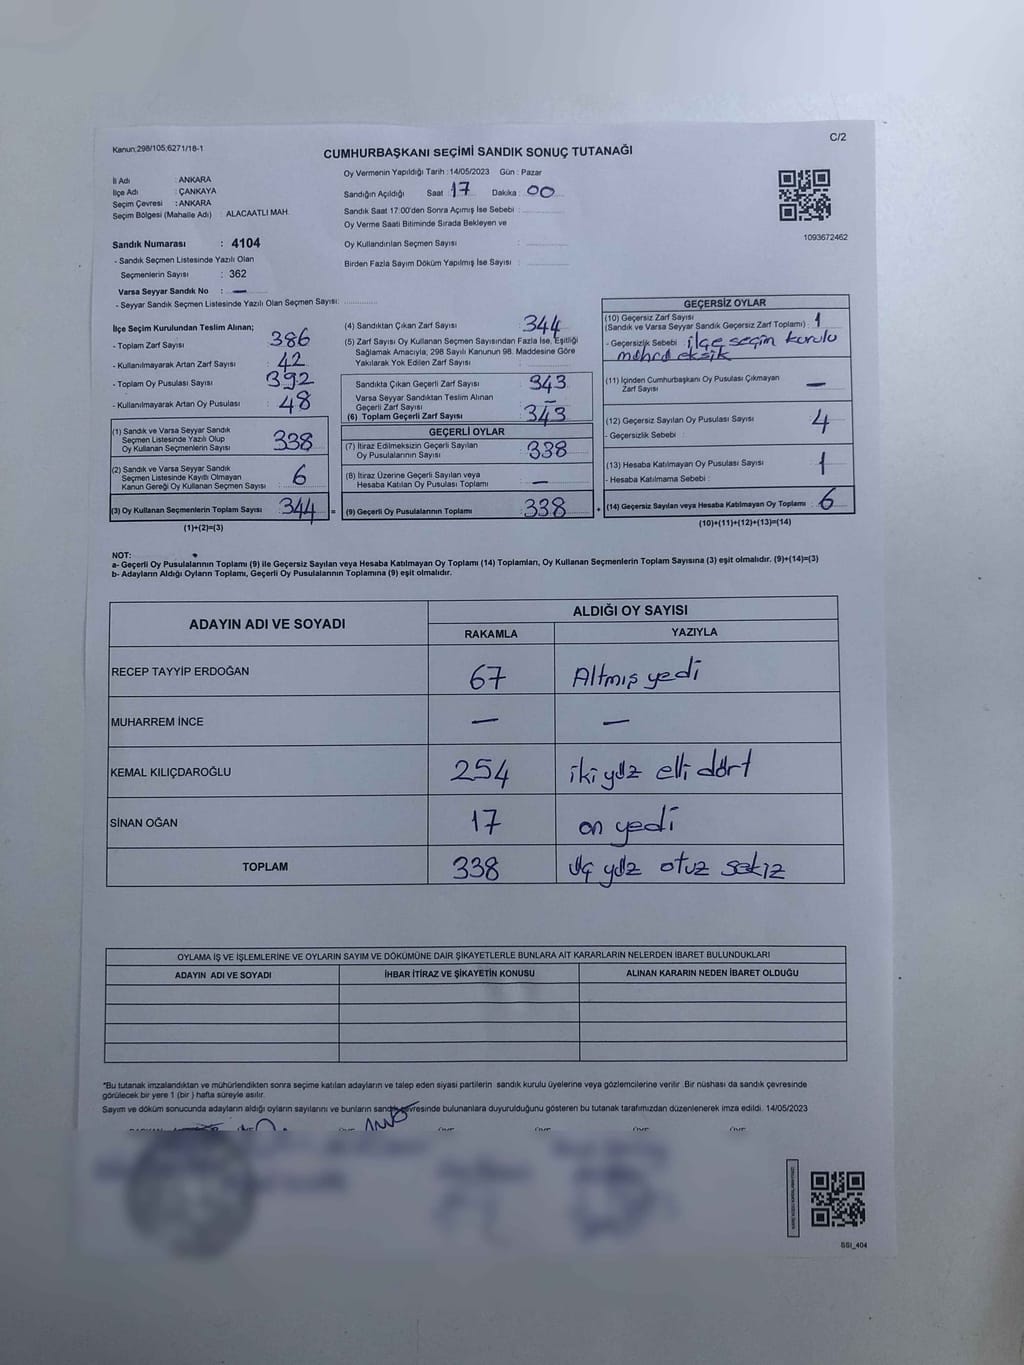 Kanun:298/105;6271/18-1
C/2
CUMHURBAŞKANI SEÇİMİ SANDIK SONUÇ TUTANAĞI
İl Adı : ANKARA
İlçe Adı : ÇANKAYA
Seçim Çevresi : ANKARA
Seçim Bölgesi (Mahalle Adı) : ALACAATLI MAH.
Sandık Numarası : 4104
- Sandık Seçmen Listesinde Yazılı Olan
Seçmenlerin Sayısı : 362
Varsa Seyyar Sandık No : —
- Seyyar Sandık Seçmen Listesinde Yazılı Olan Seçmen Sayısı:
Oy Vermenin Yapıldığı Tarih : 14/05/2023 Gün : Pazar
Sandığın Açıldığı Saat 17 Dakika : 00
Sandık Saat 17:00'den Sonra Açımış İse Sebebi :
Oy Verme Saati Bitiminde Sırada Bekleyen ve
Oy Kullandırılan Seçmen Sayısı :
Birden Fazla Sayım Döküm Yapılmış İse Sayısı :
1093672462
İlçe Seçim Kurulundan Teslim Alınan;
- Toplam Zarf Sayısı : 386
- Kullanılmayarak Artan Zarf Sayısı : 42
- Toplam Oy Pusulası Sayısı : 392
- Kullanılmayarak Artan Oy Pusulası : 48
(1) Sandık ve Varsa Seyyar Sandık
Seçmen Listesinde Yazılı Olup
Oy Kullanan Seçmenlerin Sayısı : 338
(2) Sandık ve Varsa Seyyar Sandık
Seçmen Listesinde Kayıtlı Olmayan
Kanun Gereği Oy Kullanan Seçmen Sayısı : 6
(3) Oy Kullanan Seçmenlerin Toplam Sayısı : 344 =
(1)+(2)=(3)
(4) Sandıktan Çıkan Zarf Sayısı : 344
(5) Zarf Sayısı Oy Kullanan Seçmen Sayısından Fazla İse, Eşitliği
Sağlamak Amacıyla, 298 Sayılı Kanunun 98. Maddesine Göre
Yakılarak Yok Edilen Zarf Sayısı :
Sandıkta Çıkan Geçerli Zarf Sayısı : 343
Varsa Seyyar Sandıktan Teslim Alınan
Geçerli Zarf Sayısı : —
(6) Toplam Geçerli Zarf Sayısı : 343
GEÇERLİ OYLAR
(7) İtiraz Edilmeksizin Geçerli Sayılan
Oy Pusulalarının Sayısı : 338
(8) İtiraz Üzerine Geçerli Sayılan veya
Hesaba Katılan Oy Pusulası Toplamı : —
(9) Geçerli Oy Pusulalarının Toplamı : 338 +
GEÇERSİZ OYLAR
(10) Geçersiz Zarf Sayısı
(Sandık ve Varsa Seyyar Sandık Geçersiz Zarf Toplamı) : 1
- Geçersizlik Sebebi : ilçe seçim kurulu
mührü eksik
(11) İçinden Cumhurbaşkanı Oy Pusulası Çıkmayan
Zarf Sayısı : —
(12) Geçersiz Sayılan Oy Pusulası Sayısı : 4
- Geçersizlik Sebebi :
(13) Hesaba Katılmayan Oy Pusulası Sayısı : 1
- Hesaba Katılmama Sebebi :
(14) Geçersiz Sayılan veya Hesaba Katılmayan Oy Toplamı : 6
(10)+(11)+(12)+(13)=(14)
NOT:
a- Geçerli Oy Pusulalarının Toplamı (9) ile Geçersiz Sayılan veya Hesaba Katılmayan Oy Toplamı (14) Toplamları, Oy Kullanan Seçmenlerin Toplam Sayısına (3) eşit olmalıdır. (9)+(14)=(3)
b- Adayların Aldığı Oyların Toplamı, Geçerli Oy Pusulalarının Toplamına (9) eşit olmalıdır.
ADAYIN ADI VE SOYADI
ALDIĞI OY SAYISI
RAKAMLA YAZIYLA
RECEP TAYYİP ERDOĞAN 67 Altmış yedi
MUHARREM İNCE — —
KEMAL KILIÇDAROĞLU 254 iki yüz elli dört
SİNAN OĞAN 17 on yedi
TOPLAM 338 üç yüz otuz sekiz
OYLAMA İŞ VE İŞLEMLERİNE VE OYLARIN SAYIM VE DÖKÜMÜNE DAİR ŞİKAYETLERLE BUNLARA AİT KARARLARIN NELERDEN İBARET BULUNDUKLARI
ADAYIN ADI VE SOYADI İHBAR İTİRAZ VE ŞİKAYETİN KONUSU ALINAN KARARIN NEDEN İBARET OLDUĞU
*Bu tutanak imzalandıktan ve mühürlendikten sonra seçime katılan adayların ve talep eden siyasi partilerin sandık kurulu üyelerine veya gözlemcilerine verilir. Bir nüshası da sandık çevresinde
görülecek bir yere 1 (bir ) hafta süreyle asılır.
Sayım ve döküm sonucunda adayların aldığı oyların sayılarını ve bunların sandık çevresinde bulunanlara duyurulduğunu gösteren bu tutanak tarafımızdan düzenlenerek imza edildi. 14/05/2023
SSI_404